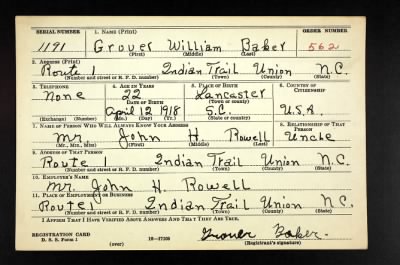 SERIAL NUMBER 1. NAME (Print) ORDER NUMBER
1191 Grover William Baker 562
(First) (Middle) (Last)
2. ADDRESS (Print)
Route 1 Indian Trail Union N.C.
(Number and street or R. F. D. number) (Town) (County) (State)
3. TELEPHONE 4. AGE IN YEARS 5. PLACE OF BIRTH 6. COUNTRY OF CITIZENSHIP
None 22 Lancaster
DATE OF BIRTH (Town or county)
April 12 1918 S.C. U.S.A.
(Exchange) (Number) (Mo.) (Day) (Yr.) (State or country)
7. NAME OF PERSON WHO WILL ALWAYS KNOW YOUR ADDRESS 8. RELATIONSHIP OF THAT PERSON
Mr. John H. Rowell Uncle
(Mr., Mrs., Miss) (First) (Middle) (Last)
9. ADDRESS OF THAT PERSON
Route 1 Indian Trail Union N.C.
(Number and street or R. F. D. number) (Town) (County) (State)
10. EMPLOYER'S NAME
Mr. John H. Rowell
11. PLACE OF EMPLOYMENT OR BUSINESS
Route 1 Indian Trail Union N.C.
(Number and street or R. F. D. number) (Town) (County) (State)
I AFFIRM THAT I HAVE VERIFIED ABOVE ANSWERS AND THAT THEY ARE TRUE.
REGISTRATION CARD Grover Baker.
D. S. S. Form 1 (over) 16-17105 (Registrant's signature)